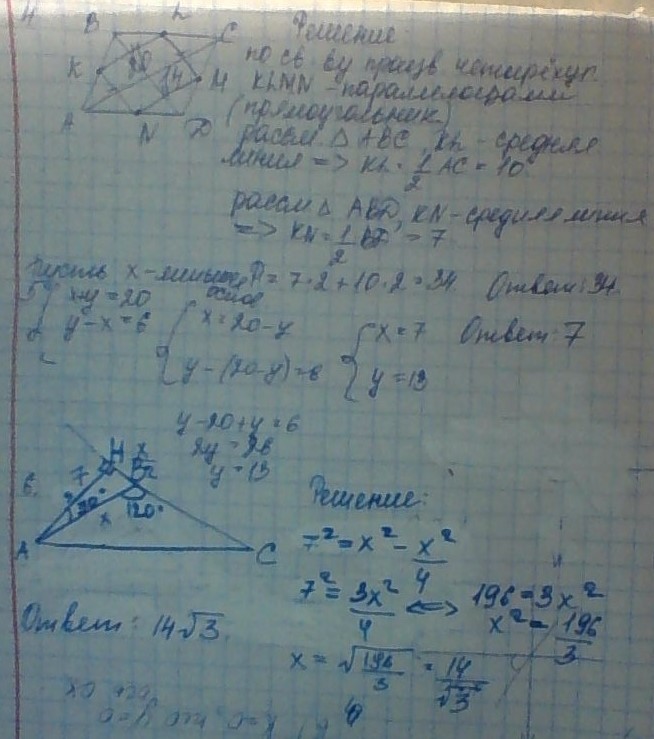 4
B L C
K 20 14 M
A N D
Решение
по св-ву произв четырёхуг.
KLMN - параллелограмм
(прямоугольник)
рассм. △ ABC, KL - средняя
линия => KL = 1/2 AC = 10
рассм △ ABD, KN - средняя линия
=> KN = 1/2 BD = 7
P = 7·2+10·2=34 Ответ: 34
5 Пусть x - меньшее основ
{ x+y=20
y-x=6
{ x=20-y
y-(20-y)=6
{ x=7
y=13
Ответ: 7
y-20+y=6
2y=26
y=13
6.
H x/2
7 B
30° 120°
x
A C
Решение:
7²=x²-x²/4
7²=3x²/4 <=> 196=3x²
x²=196/3
x=√196/3=14/√3
Ответ: 14√3.